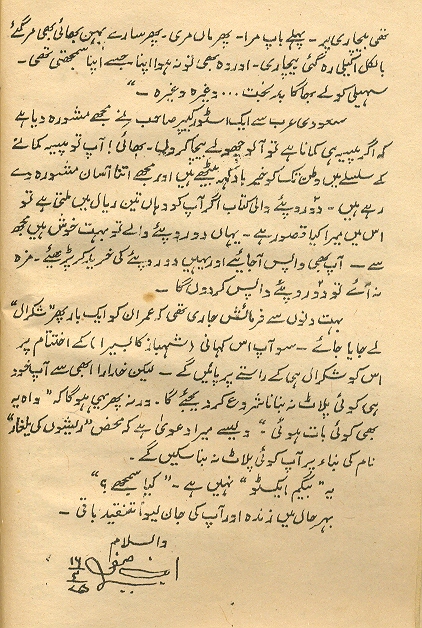 تھی بیچاری پر ۔ پہلے باپ مرا ۔ پھر ماں مری ۔ پھر سارے بہن بھائی بھی مر گئے
بالکل اکیلی رہ گئی بیچاری ۔ اور وہ بھی تو نہ ہوا اپنا جسے اپنا سمجھتی تھی ۔
سہیلی کو لے بھاگا بدبخت ... وغیرہ وغیرہ ۔"
سعودی عرب سے ایک اسٹور کیپر صاحب نے مجھے مشورہ دیا ہے
کہ اگر پیسہ ہی کمانا ہے تو آلو چھولے بیچا کرو ۔ بھائی! آپ تو پیسہ کمانے
کے سلسلے میں وطن تک کو خیر باد کہہ بیٹھے ہیں اور مجھے اتنا آسان مشورہ دے
رہے ہیں ۔ دو روپئے والی کتاب اگر آپ کو وہاں تین ریال میں ملتی ہے تو
اس میں میرا کیا قصور ہے ۔ یہاں دو روپئے والے تو بہت خوش ہیں مجھ
سے ۔ آپ بھی واپس آ جائیے اور یہیں دو روپئے کی خرید کر پڑھیئے ۔ مزہ
نہ آئے تو دو روپئے واپس کر دوں گا ۔
بہت دنوں سے فرمائش جاری تھی کہ عمران کو ایک بار پھر "شکرال"
لے جایا جائے ۔ سو آپ اس کہانی (شہباز کا بسیرا) کے اختتام پر
اس کو شکرال ہی کے راستے پر پائیں گے ۔ لیکن خدارا ابھی سے آپ خود
ہی کوئی پلاٹ نہ بنانا شروع کر دیجئے گا ۔ ورنہ پھر یہی ہو گا کہ "واہ یہ
بھی کوئی بات ہوئی ۔" ویسے میرا دعویٰ ہے کہ محض "ریشوں کی یلغار"
نام کی بنا پر آپ کوئی پلاٹ نہ بنا سکیں گے ۔
یہ "بیگم ایکسٹو" نہیں ہے ۔ "کیا سمجھے؟"
بہر حال میں زندہ اور آپ کی جان لیوا تنقید باقی ۔
والسلام
ابن صفی